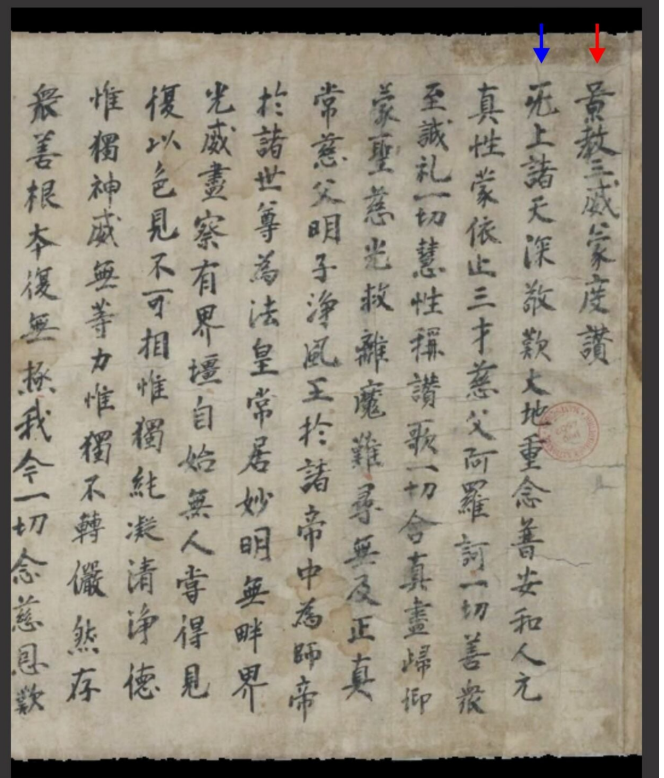 景教三威蒙度讚
无上諸天深敬歎大地重念普安和人元
真性蒙依止三才慈父阿羅訶一切善衆
至誠礼一切慧性稱讚歌一切含真盡歸仰
蒙聖慈光救離魔難尋無及正真
常慈父明子淨風王扵諸帝中為師帝
扵諸世尊為法皇常居妙明無畔界
光威盡察有界壃自始無人嘗得見
復以色見不可相惟獨純凝清淨德
惟獨神威無等力惟獨不轉儼然存
衆善根本復無極我今一切念慈恩歎